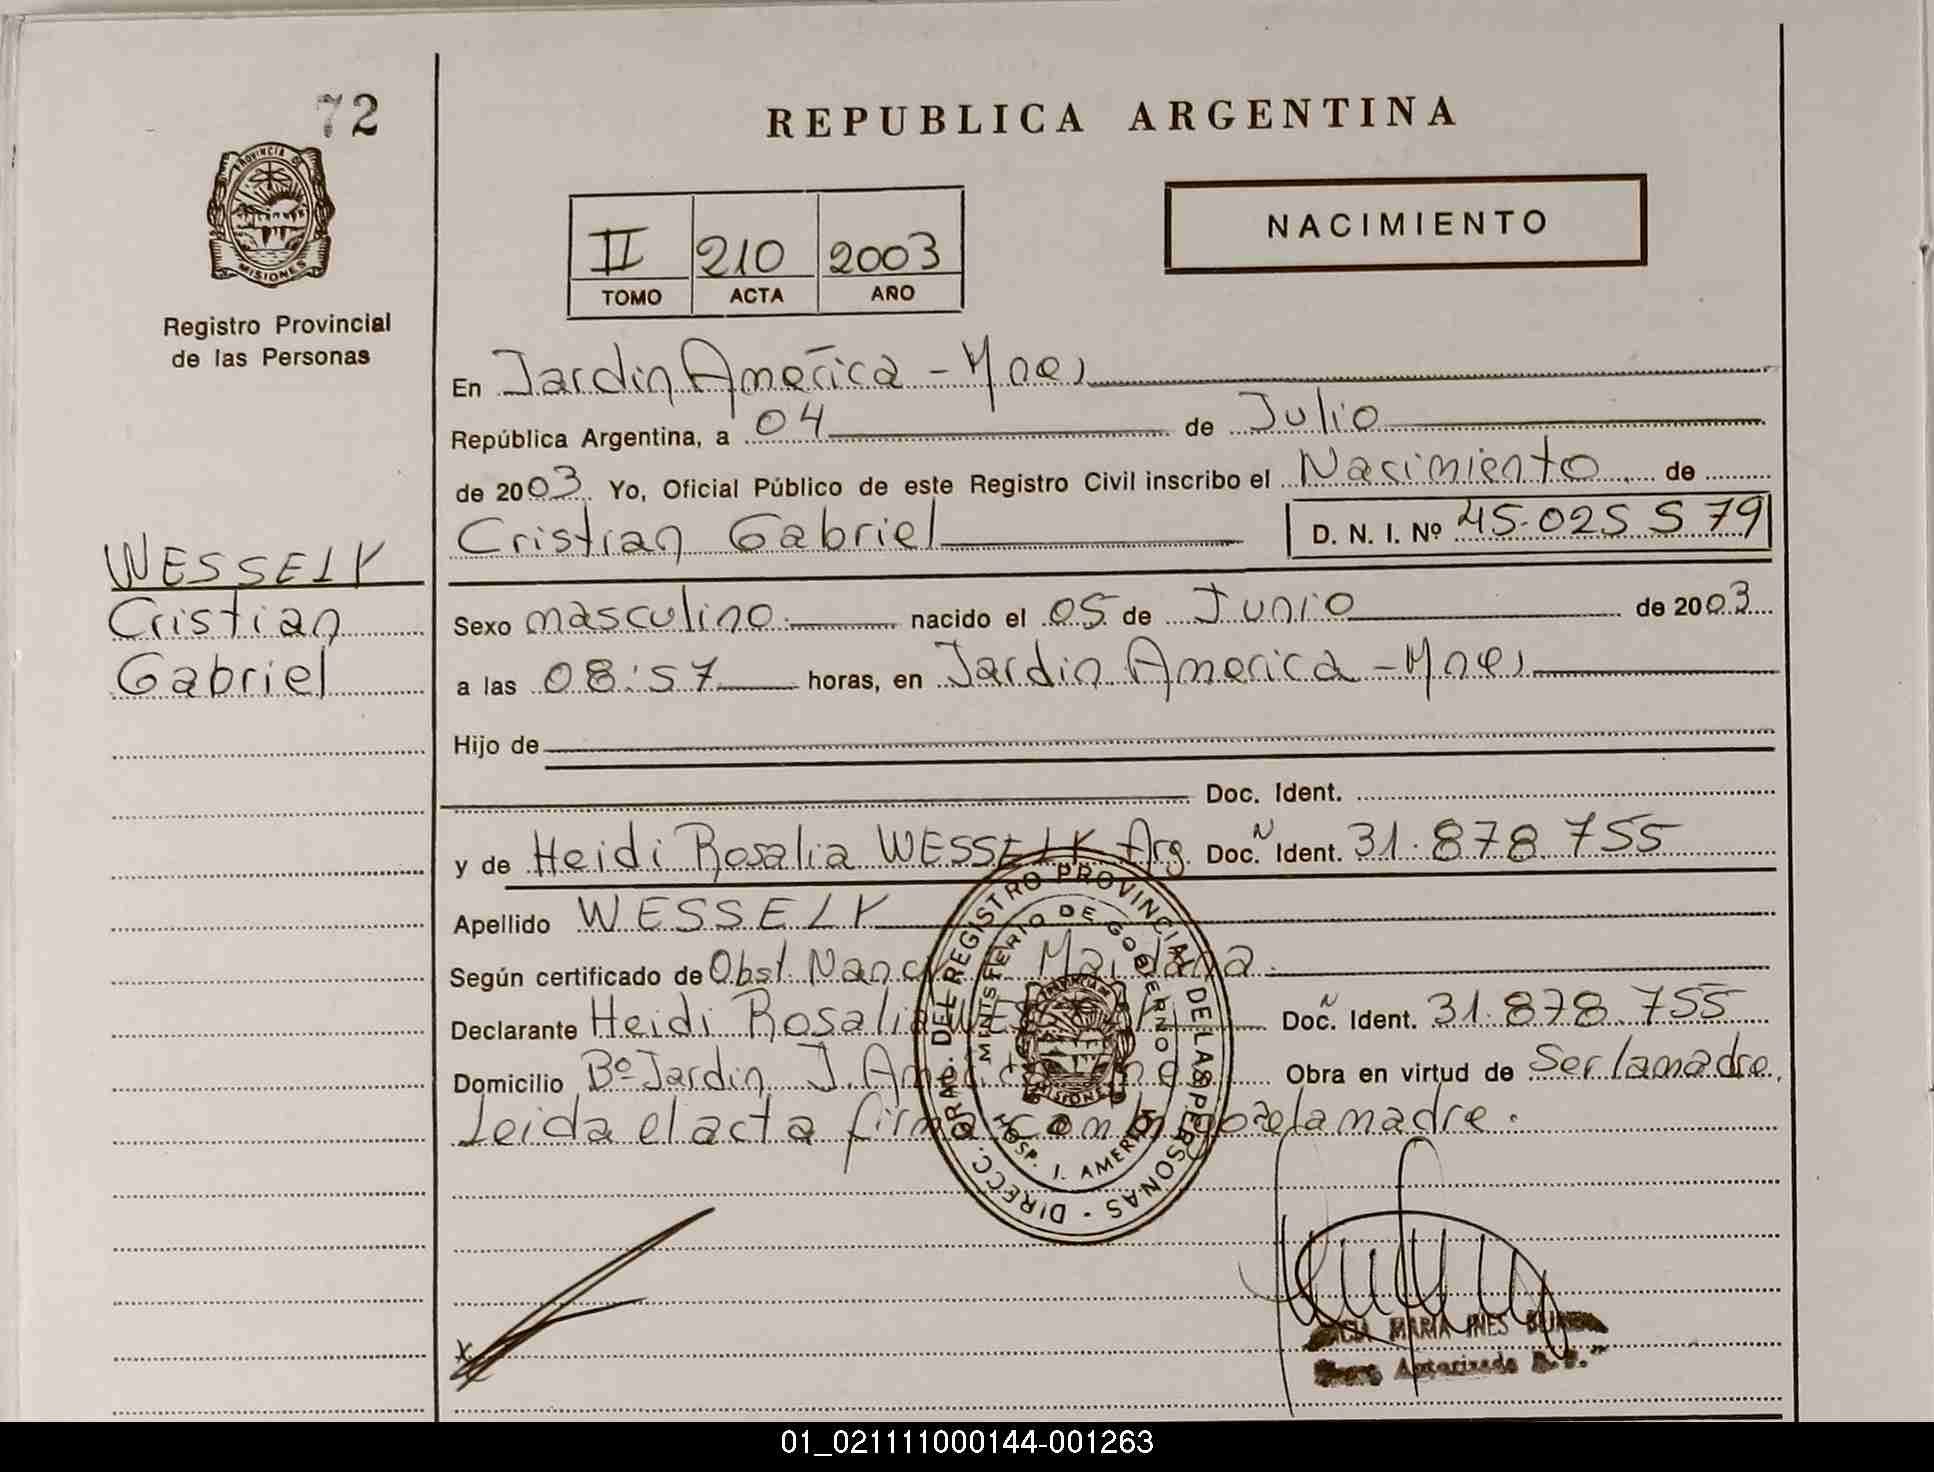 72
PROVINCIA DE
MISIONES
Registro Provincial
de las Personas
REPUBLICA ARGENTINA
II 210 2003
TOMO ACTA AÑO
NACIMIENTO
En Jardin América - Mnes
República Argentina, a 04 de Julio
de 2003 Yo, Oficial Público de este Registro Civil inscribo el Nacimiento de
Cristian Gabriel D. N. I. Nº 45.025 579
WESSELK
Cristian
Gabriel
Sexo masculino nacido el 05 de Junio de 2003
a las 08:57 horas, en Jardin America - Mnes
Hijo de
Doc. Ident.
y de Heidi Rosalia WESSELK Arg. Doc. N Ident. 31.878.755
Apellido WESSELK
Según certificado de Obst. Maidana.
Declarante Heidi Rosalia Doc. N Ident. 31.878.755
Domicilio Bº Jardin J. Obra en virtud de Ser la madre,
Leida el acta firma la madre.
DIRECC. GRAL. DEL REGISTRO PROVINCIAL DE LAS PERSONAS -
MINISTERIO DE GOBERNO
MISIONES
HOSP. J. AMERICA
x
MARIA INES
Autorizado
01_021111000144-001263